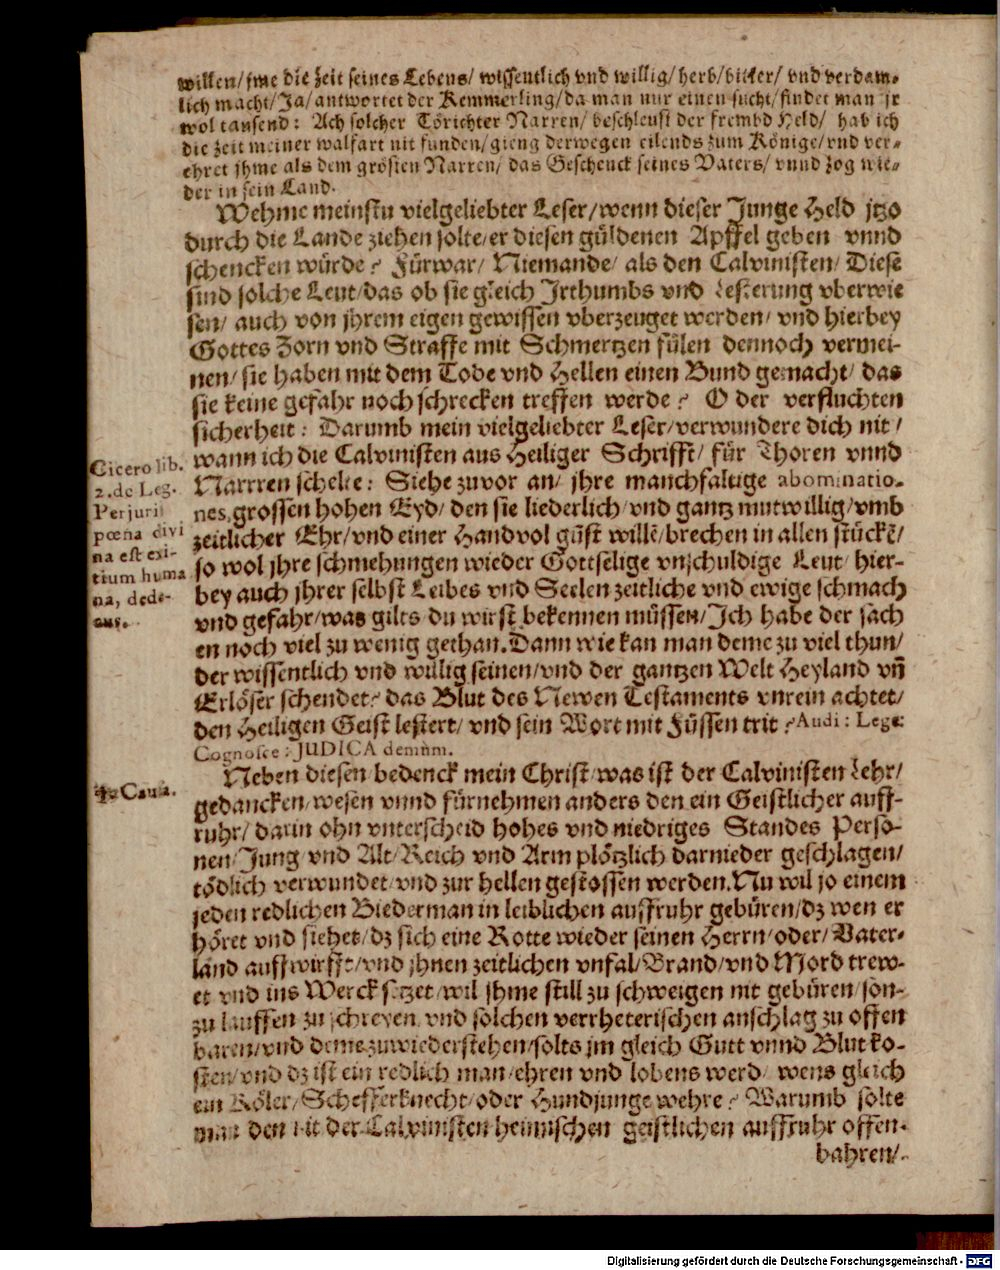 willen/ jme die Zeit seines Lebens/ wissentlich vnd willig/ herb/ bitter/ vnd verdam-
lich macht/ Ja/ antwortet der Kemmerling/ da man nur einen sucht/ findet man jr
wol tausend: Ach solcher Törichter Narren/ beschleust der frembd Held/ hab ich
die Zeit meiner walfart nit funden/ gieng derwegen eilends zum Könige/ vnd ver-
ehret jhme als dem grösten Narren/ das Geschenck seines Vaters/ vnnd zog wie-
der in sein Land.
Wehme meinstu vielgeliebter Leser/ wenn dieser Junge Held jtzo
durch die Lande ziehen solte/ er diesen güldenen Apffel geben vnnd
schencken würde? Fürwar/ Niemande/ als den Calvinisten/ Diese
sind solche Leut/ das ob sie gleich Irthumbs vnd Lesterung vberwie
sen/ auch von jhrem eigen gewissen vberzeuget werden/ vnd hierbey
Gottes Zorn vnd Straffe mit Schmertzen fülen dennoch vermei-
nen/ sie haben mit dem Tode vnd Hellen einen Bund gemacht/ das
sie keine gefahr noch schrecken treffen werde? O der verfluchten
sicherheit: Darumb mein vielgeliebter Leser/ verwundere dich nit/
wann ich die Calvinisten aus Heiliger Schrifft/ für Thoren vnnd
Narrren schelte: Siehe zuvor an/ jhre manchfaltige abominatio-
nes, grossen hohen Eyd/ den sie liederlich/ vnd gantz mutwillig/ vmb
zeitlicher Ehr/ vnd einer Handvol gůst willē/ brechen in allen stückē/
so wol jhre schmehungen wieder Gottselige vnschuldige Leut/ hier-
bey auch jhrer selbst Leibes vnd Seelen zeitliche vnd ewige schmach
vnd gefahr/ was gilts/ du wirst bekennen müssen/ Ich habe der sach
en noch viel zu wenig gethan. Dann wie kan man deme zu viel thun/
der wissentlich vnd willig seinen/ vnd der gantzen Welt Heyland vñ
Erlöser schendet? das Blut des Newen Testaments vnrein achtet/
den Heiligen Geist lestert/ vnd sein Wort mit Füssen trit? Audi: Lege:
Cognosce: JUDICA demùm.
Cicero lib.
2. de Leg.
Perjurii
pœna divi
na est exi-
tium huma
na, dede-
cus.
Neben diesen bedenck mein Christ/ was ist der Calvinisten Lehr/
gedancken/ wesen vnnd fürnehmen anders den ein Geistlicher auff-
ruhr/ darin ohn vnterscheid hohes vnd niedriges Standes Perso-
nen/ Jung vnd Alt/ Reich vnd Arm plötzlich darnieder geschlagen/
tödlich verwundet/ vnd zur hellen gestossen werden. Nu wil jo einem
jeden redlichen Biederman in leiblichen auffruhr gebüren/ dz wen er
höret vnd siehet/ dz sich eine Rotte wieder seinen Herrn/ oder/ Vater-
land auffwirfft/ vnd jhnen zeitlichen vnfal/ Brand/ vnd Mord trew-
et vnd ins Werck setzet/ wil jhme still zu schweigen nit gebüren/ son-
zu lauffen zu schreyen/ vnd solchen verrheterischen anschlag zu offen
baren/ vnd deme zuwiederstehen/ solts jm gleich Gutt vnnd Blut ko-
sten/ vnd dz ist ein redlich man/ ehren vnd lobens werd/ wens gleich
ein Köler/ Schefferknecht/ oder Hundjunge wehre? Warumb solte
man den nit der Calvinisten heimischen geistlichen auffruhr offen-
bahren/
Causa.
Digitalisierung gefördert durch die Deutsche Forschungsgemeinschaft - DFG